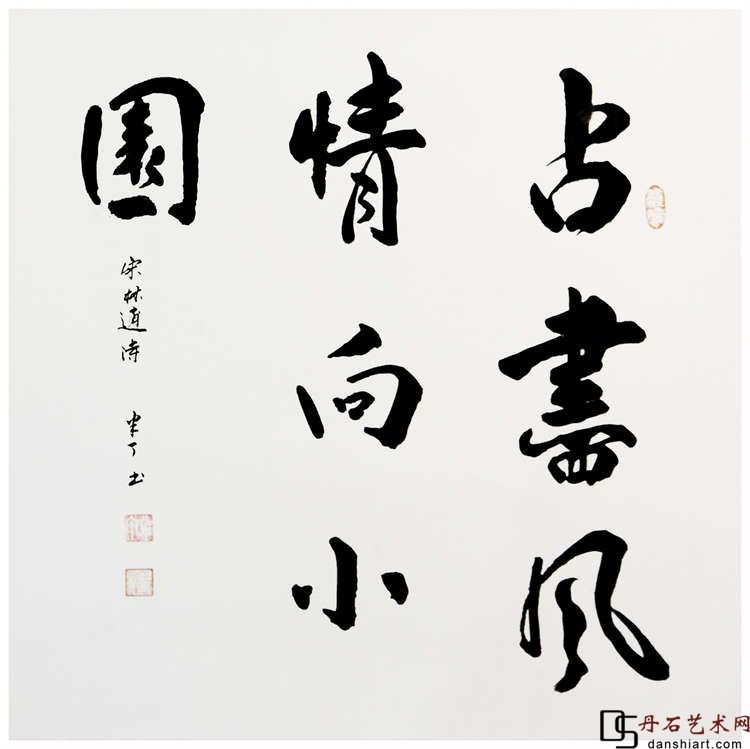 占盡風
情向小
園
宋林逋詩
半丁书
DS 丹石艺术网
danshiart.com